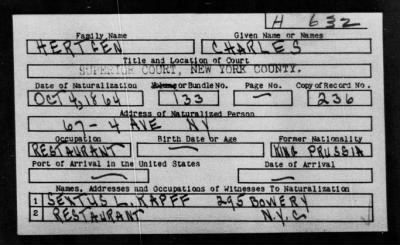 H 632
Family Name Given Name or Names
HERTGEN CHARLES
Title and Location of Court
SUPERIOR COURT, NEW YORK COUNTY.
Date of Naturalization Volume or Bundle No. Page No. Copy of Record No.
OCT 4, 1864 133 — 236
Address of Naturalized Person
67 - 4 AVE NY
Occupation Birth Date or Age Former Nationality
RESTAURANT — KING PRUSSIA
Port of Arrival in the United States Date of Arrival
— —
Names, Addresses and Occupations of Witnesses To Naturalization
1 SEXTUS L. KAPFF 295 BOWERY
2 RESTAURANT N.Y.C